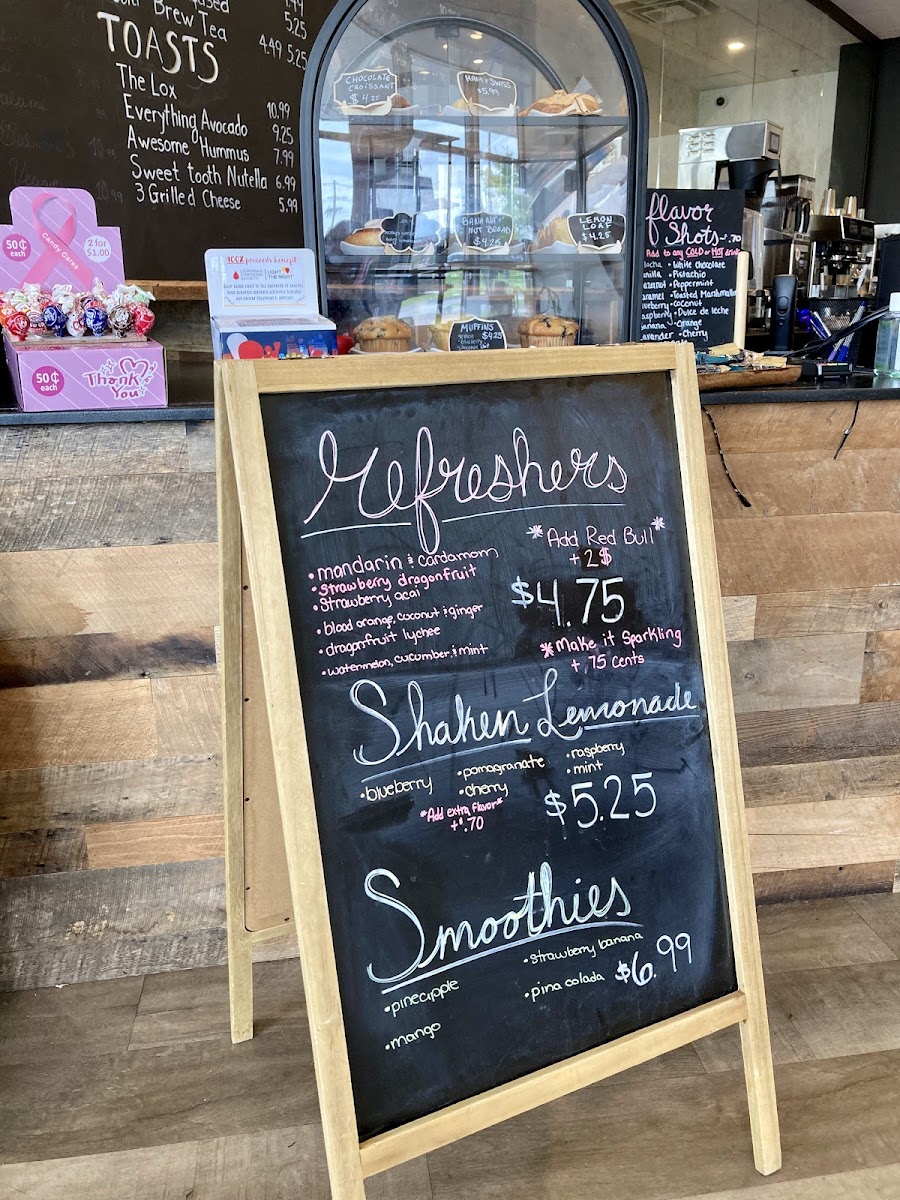 Brew Tea
5.25
4.49 5.25
TOASTS
The Lox 10.99
Everything Avocado 9.25
Awesome Hummus 7.99
Sweet tooth Nutella 6.99
3 Grilled Cheese 5.99
CHOCOLATE
CROISSANT
$4.25
HAM & SWISS
$5.99
BANANA
NUT BREAD
$4.25
LEMON
LOAF
$4.25
MUFFINS
$4.25
flavor
Shots -.70
Add to any COLD or HOT drink
• White chocolate
• Pistachio
• Peppermint
• Toasted Marshmallo
• coconut
• Dulce de leche
• Orange
• cherry
50¢
each
Candy Cares
2 for
$1.00
50¢
each
Thank
You
100% proceeds benefit
LIGHT
THE NIGHT
Refreshers
*Add Red Bull*
+ 2$
• mandarin & cardamom
• strawberry dragonfruit
• strawberry acai
• blood orange, coconut & ginger
• dragonfruit lychee
• watermelon, cucumber, & mint
$4.75
*Make it Sparkling
+ .75 cents
Shaken Lemonade
• blueberry
• pomagranate
• cherry
• raspberry
• mint
*Add extra flavor*
+ .70
$5.25
Smoothies
• pineapple
• mango
• strawberry banana
• pina colada
$6.99